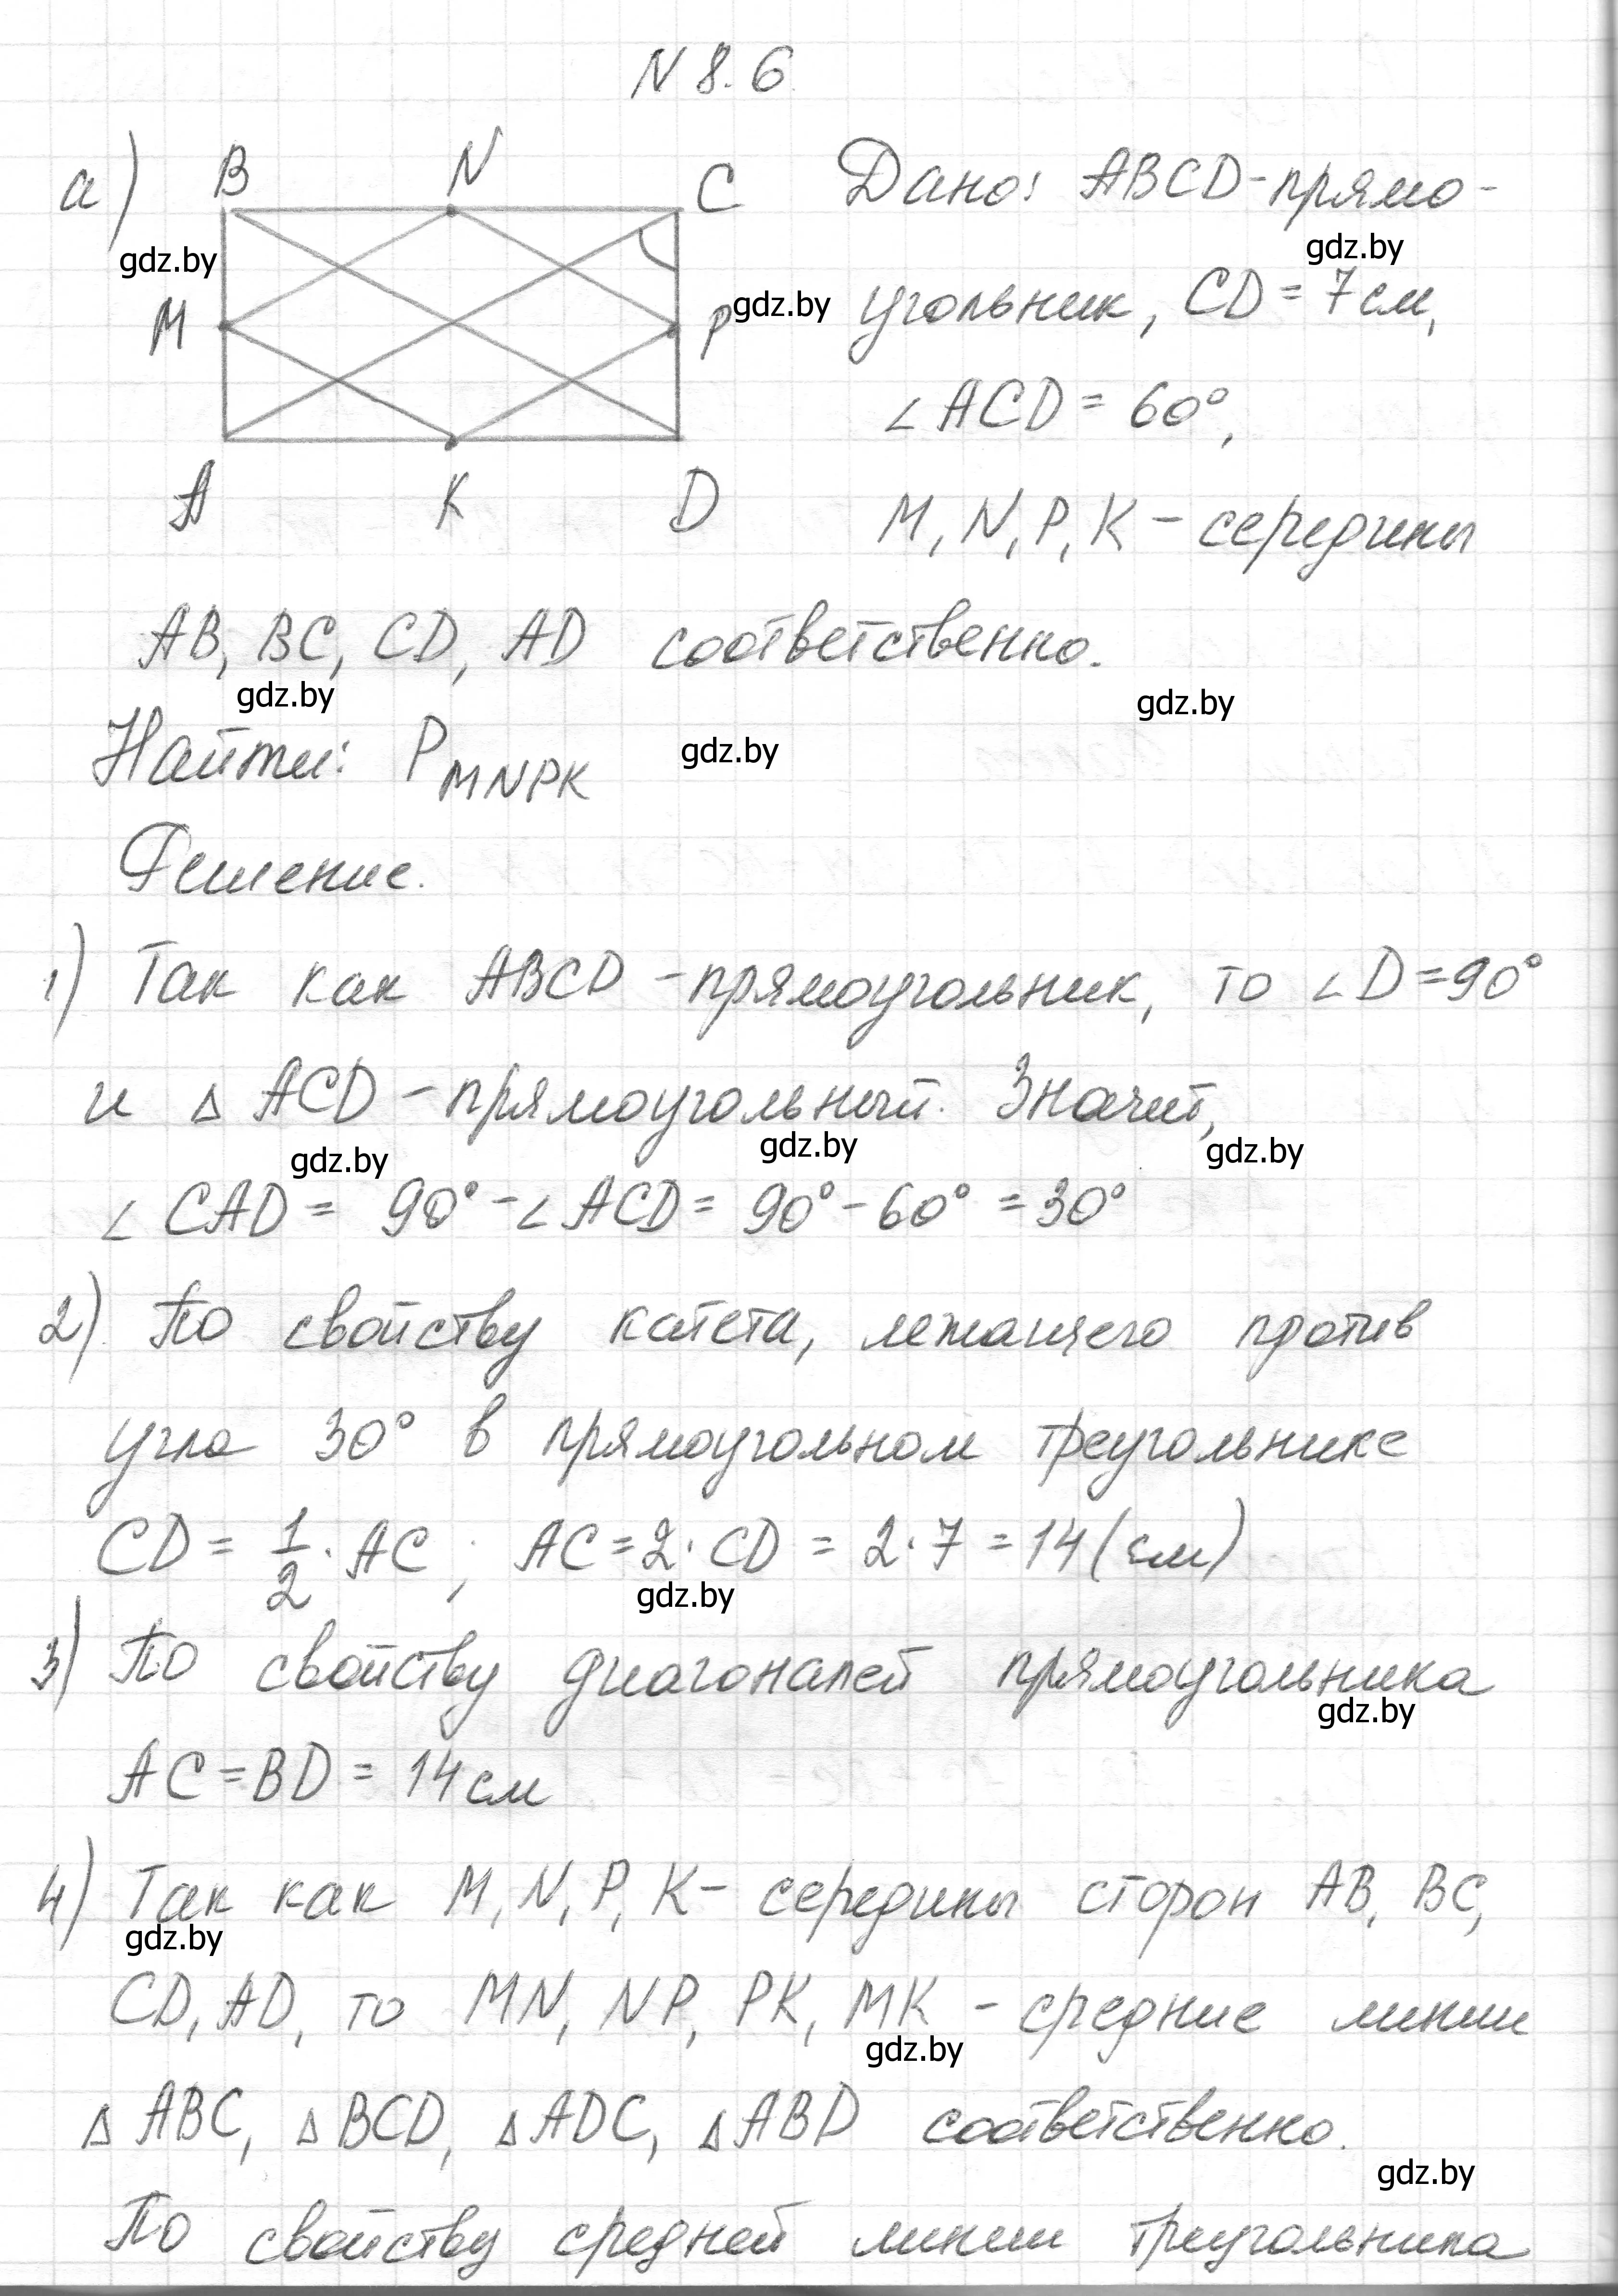 N 8.6
а) B N C Дано: ABCD-прямо-
gdz.by gdz.by
M P gdz.by угольник, CD = 7см,
∠ ACD = 60°,
A K D M, N, P, K - середины
AB, BC, CD, AD соответственно.
gdz.by gdz.by
Найти: P MNPK gdz.by
Решение.
1) Так как ABCD - прямоугольник, то ∠ D = 90°
и △ ACD - прямоугольный. Значит,
gdz.by gdz.by gdz.by
∠ CAD = 90° - ∠ ACD = 90° - 60° = 30°
2) По свойству катета, лежащего против
угла 30° в прямоугольном треугольнике
CD = 1/2 · AC ; AC = 2 · CD = 2 · 7 = 14 (см)
gdz.by
3) По свойству диагоналей прямоугольника
gdz.by
AC = BD = 14 см
4) Так как M, N, P, K - середины сторон AB, BC,
gdz.by
CD, AD, то MN, NP, PK, MK - средние линии
gdz.by
△ ABC, △ BCD, △ ADC, △ ABD соответственно.
gdz.by
По свойству средней линии треугольника